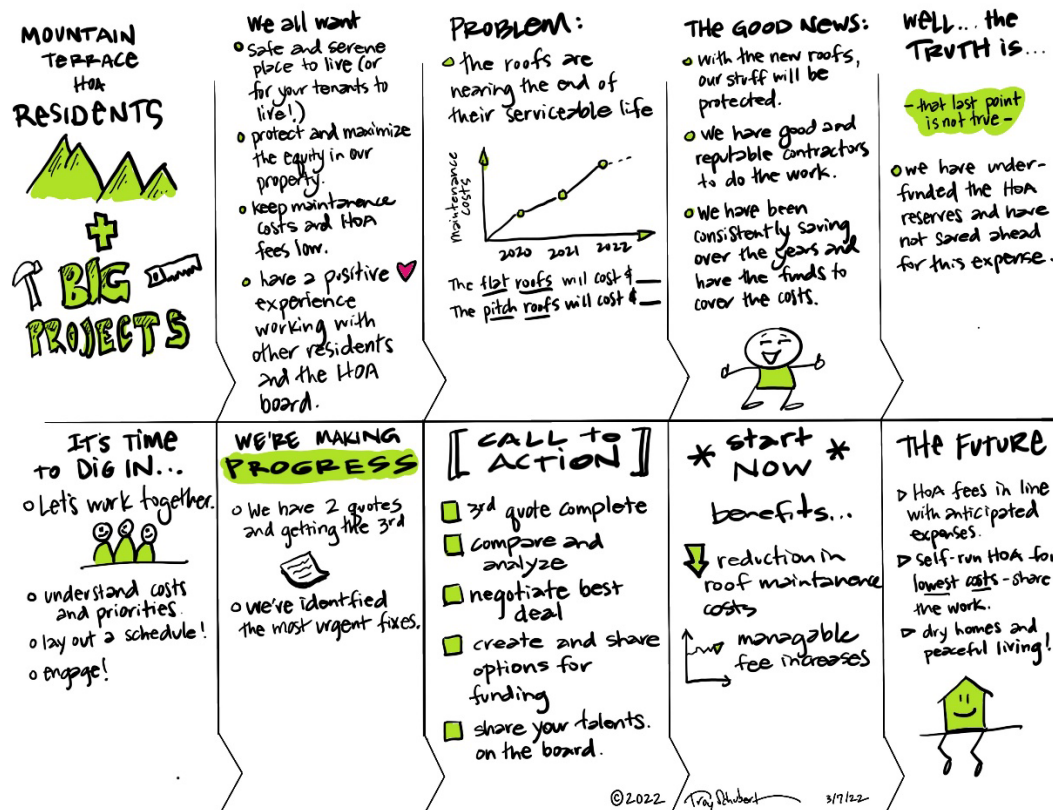 MOUNTAIN
TERRACE
HOA
RESIDENTS
+
BIG
PROJECTS
We all want
safe and serene
place to live (or
for your tenants to
live!)
protect and maximize
the equity in our
property.
keep maintanence
costs and HOA
fees low.
have a positive
experience
working with
other residents
and the HOA
board.
PROBLEM:
the roofs are
nearing the end of
their serviceable life
maintenance
costs
2020 2021 2022
The flat roofs will cost $ __
The pitch roofs will cost $ __
THE GOOD NEWS:
with the new roofs,
our stuff will be
protected.
we have good and
reputable contractors
to do the work.
We have been
consistently saving
over the years and
have the funds to
cover the costs.
WELL... the
TRUTH is...
- that last point
is not true -
we have under-
funded the HOA
reserves and have
not saved ahead
for this expense.
IT'S TIME
TO DIG IN...
Let's work together.
understand costs
and priorities.
lay out a schedule!
engage!
WE'RE MAKING
PROGRESS
We have 2 quotes
and getting the 3rd
we've identified
the most urgent fixes.
[CALL to
ACTION]
3rd quote complete
compare and
analyze
negotiate best
deal
create and share
options for
funding
share your talents.
on the board.
* start *
NOW
benefits...
reduction in
roof maintanance
costs
managable
fee increases
THE FUTURE
HOA fees in line
with anticipated
expenses.
self-run HOA for
lowest costs - share
the work.
dry homes and
peaceful living!
©2022 Troy Schubert 3/7/22